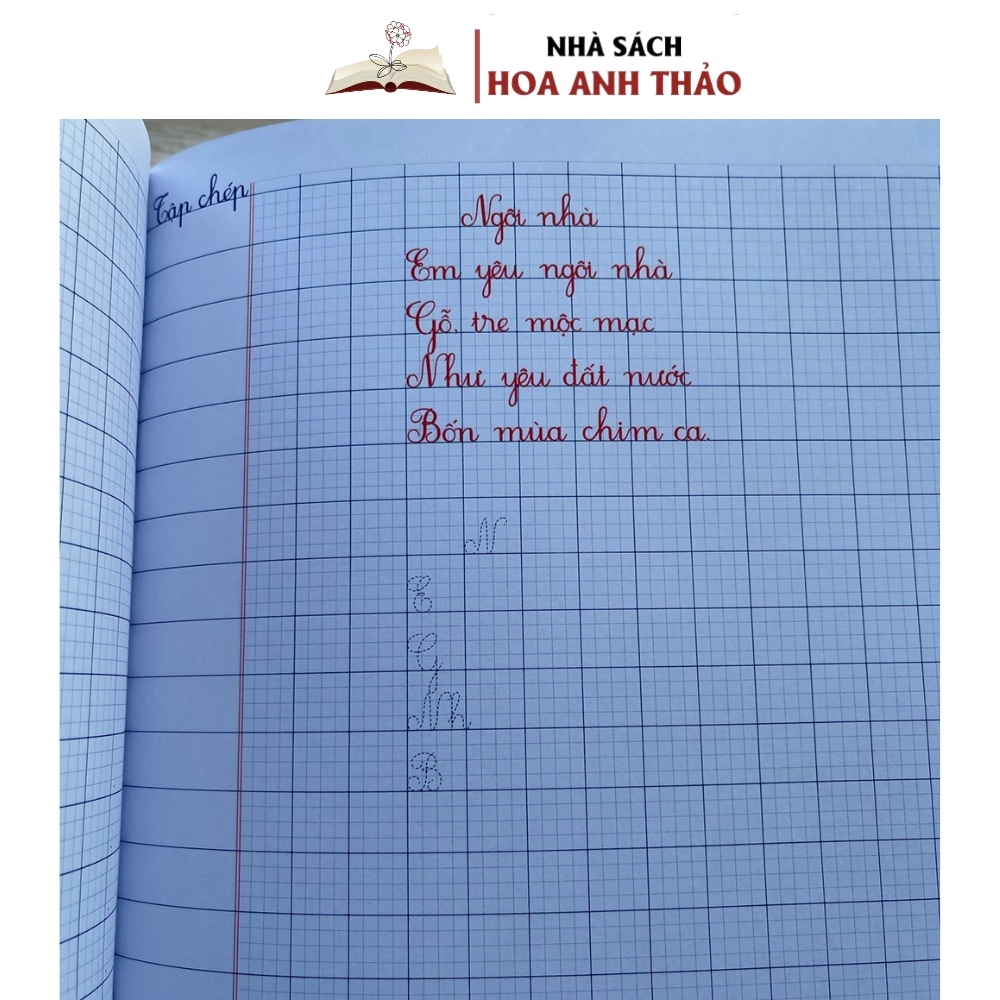 NHÀ SÁCH
HOA ANH THẢO
Tập chép
Ngôi nhà
Em yêu ngôi nhà
Gỗ, tre mộc mạc
Như yêu đất nước
Bốn mùa chim ca.
N
E
G
Nh
B